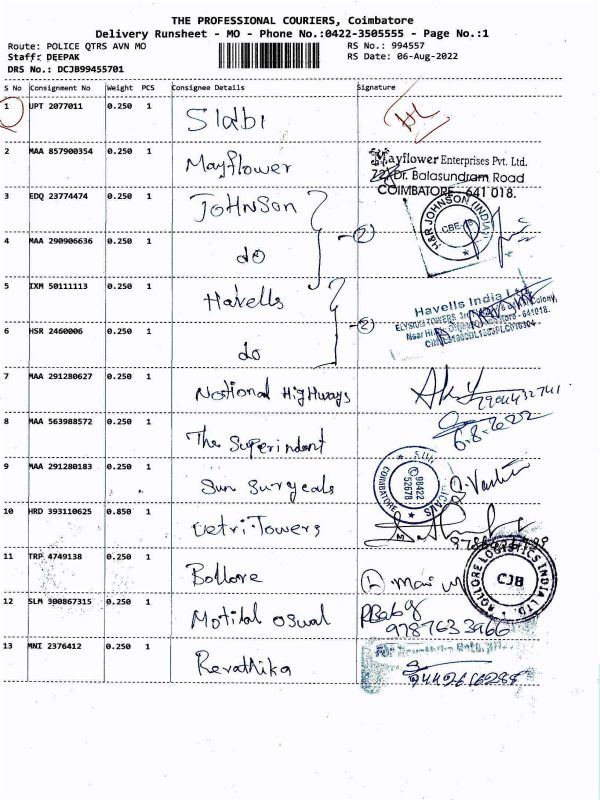 THE PROFESSIONAL COURIERS, Coimbatore
Delivery Runsheet - MO - Phone No.:0422-3505555 - Page No.:1
Route: POLICE QTRS AVN MO
RS No.: 994557
Staff: DEEPAK
RS Date: 06-Aug-2022
DRS No.: DCJB99455701
S No Consignment No Weight PCS Consignee Details Signature
1 UPT 2077011 0.250 1 SIdbi
2 MAA 857900354 0.250 1 Mayflower
Mayflower Enterprises Pvt. Ltd.
Dr. Balasundram Road
COIMBATORE - 641 018.
3 EDQ 23774474 0.250 1 JOHNSON
H&R JOHNSON (INDIA)
CBE-18
4 MAA 290906636 0.250 1 do
2
5 IXM 50111113 0.250 1 Havells
Havells India Ltd.
ELYSIUM TOWERS
6 HSR 2460006 0.250 1 do
2
7 MAA 291280627 0.250 1 National HigHways
8 MAA 563988572 0.250 1 The Superindent
6.8.2022
9 MAA 291280183 0.250 1 Sun Surgeals
COIMBATORE
98422
52678
10 HRD 393110625 0.850 1 Vetri Towers
11 TRP 4749138 0.250 1 Bollore
BOLLORE LOGISTICS INDIA LTD.
CJB
12 SLM 300867315 0.250 1 Motilal oswal
PBabu
9787633966
13 MNI 2376412 0.250 1 Revathika